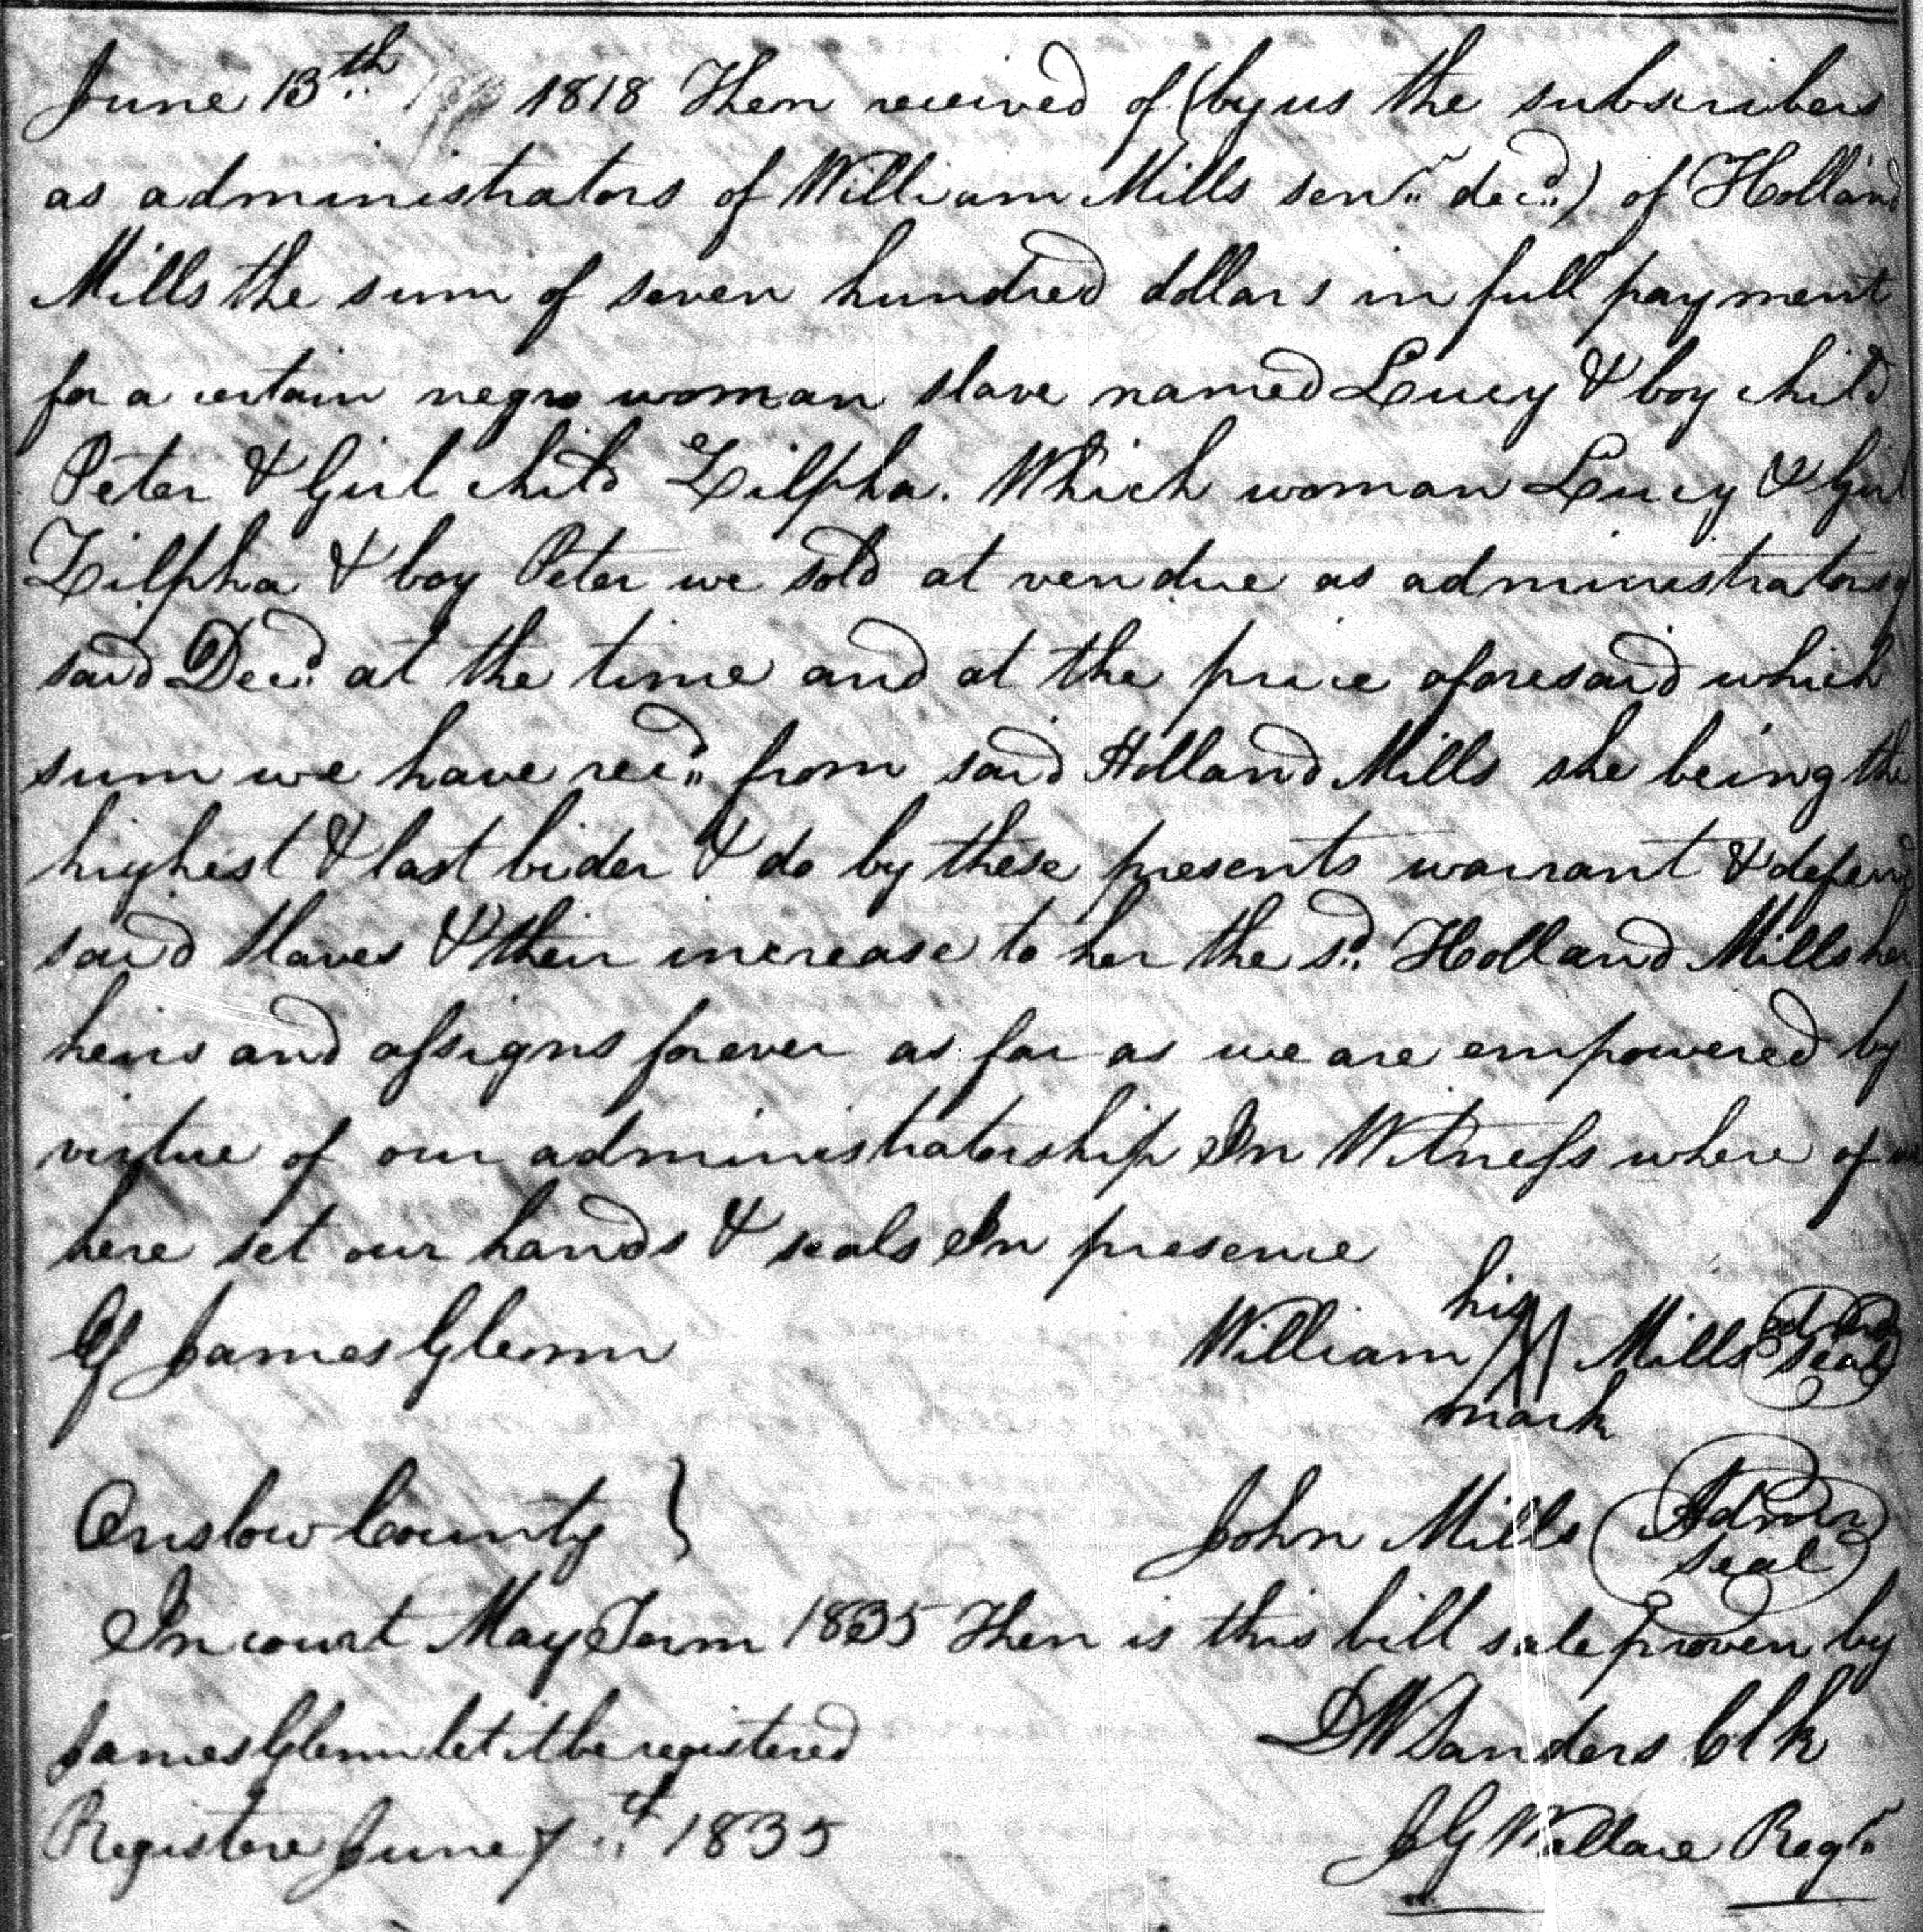 June 13th 1818 Then received of (by us the subscribers
as administrators of William Mills senr decd) of Holland
Mills the sum of seven hundred dollars in full payment
for a certain negro woman slave named Lucy & boy child
Peter & Girl child Zilpha. Which woman Lucy & Girl
Zilpha & boy Peter we sold at vendue as administrators of
said Decd at the time and at the price aforesaid which
sum we have recd from said Holland Mills she being the
highest & last bider & do by these presents warrant & defend
said slaves & their increase to her the sd Holland Mills her
heirs and assigns forever as far as we are empowered by
virtue of our administratorship In Witness where of we
here set our hands & seals In presence
Of James Glenn William his mark Mills seal
Onslow County } John Mills Admr seal
In court May Term 1835 Then is this bill sale proven by
James Glenn let it be registered D W Sanders Clk
Registere June 7th 1835 J G Wallace Regr